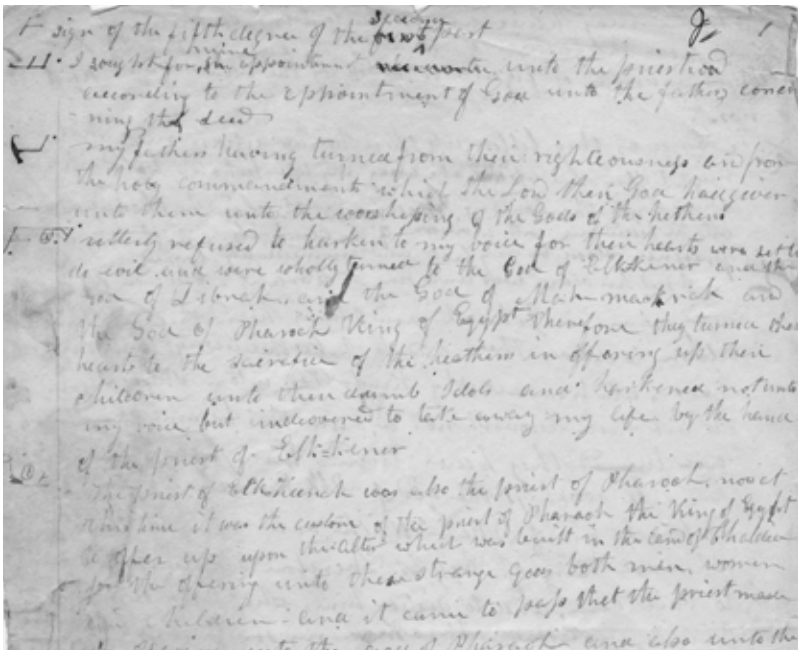 sign of the fifth degree of the first second part
I sought for mine appointment unto the priesthood
according to the appointment of God unto the fathers concer
ning the seed
my fathers having turned from their righteousness and from
the holy commandments which the Lord their God had given
unto them unto the worshiping of the Gods of the hethens
utterly refused to harken to my voice for their hearts were set to
do evil and were wholly turned to the God of Elkkener and the
God of Libnah and the God of Mahmackrah and
the God of Pharoah King of Egypt therefore they turned their
hearts to the sacrifice of the heathens in offering up their
children unto their dumb Idols and harkened not unto
my voice but indeovered to take away my life by the hand
of the priest of Elk=Kener
The priest of Elkkeenah was also the priest of Pharoah, now at
this time it was the custom of the priest of Pharaoh the King of Egypt
to offer up upon the alter which was built in the land of Chaldea
for the offering unto these strange gods both men, women
and children and it came to pass that the priest made
an offering unto the god of Pharoah and also unto the